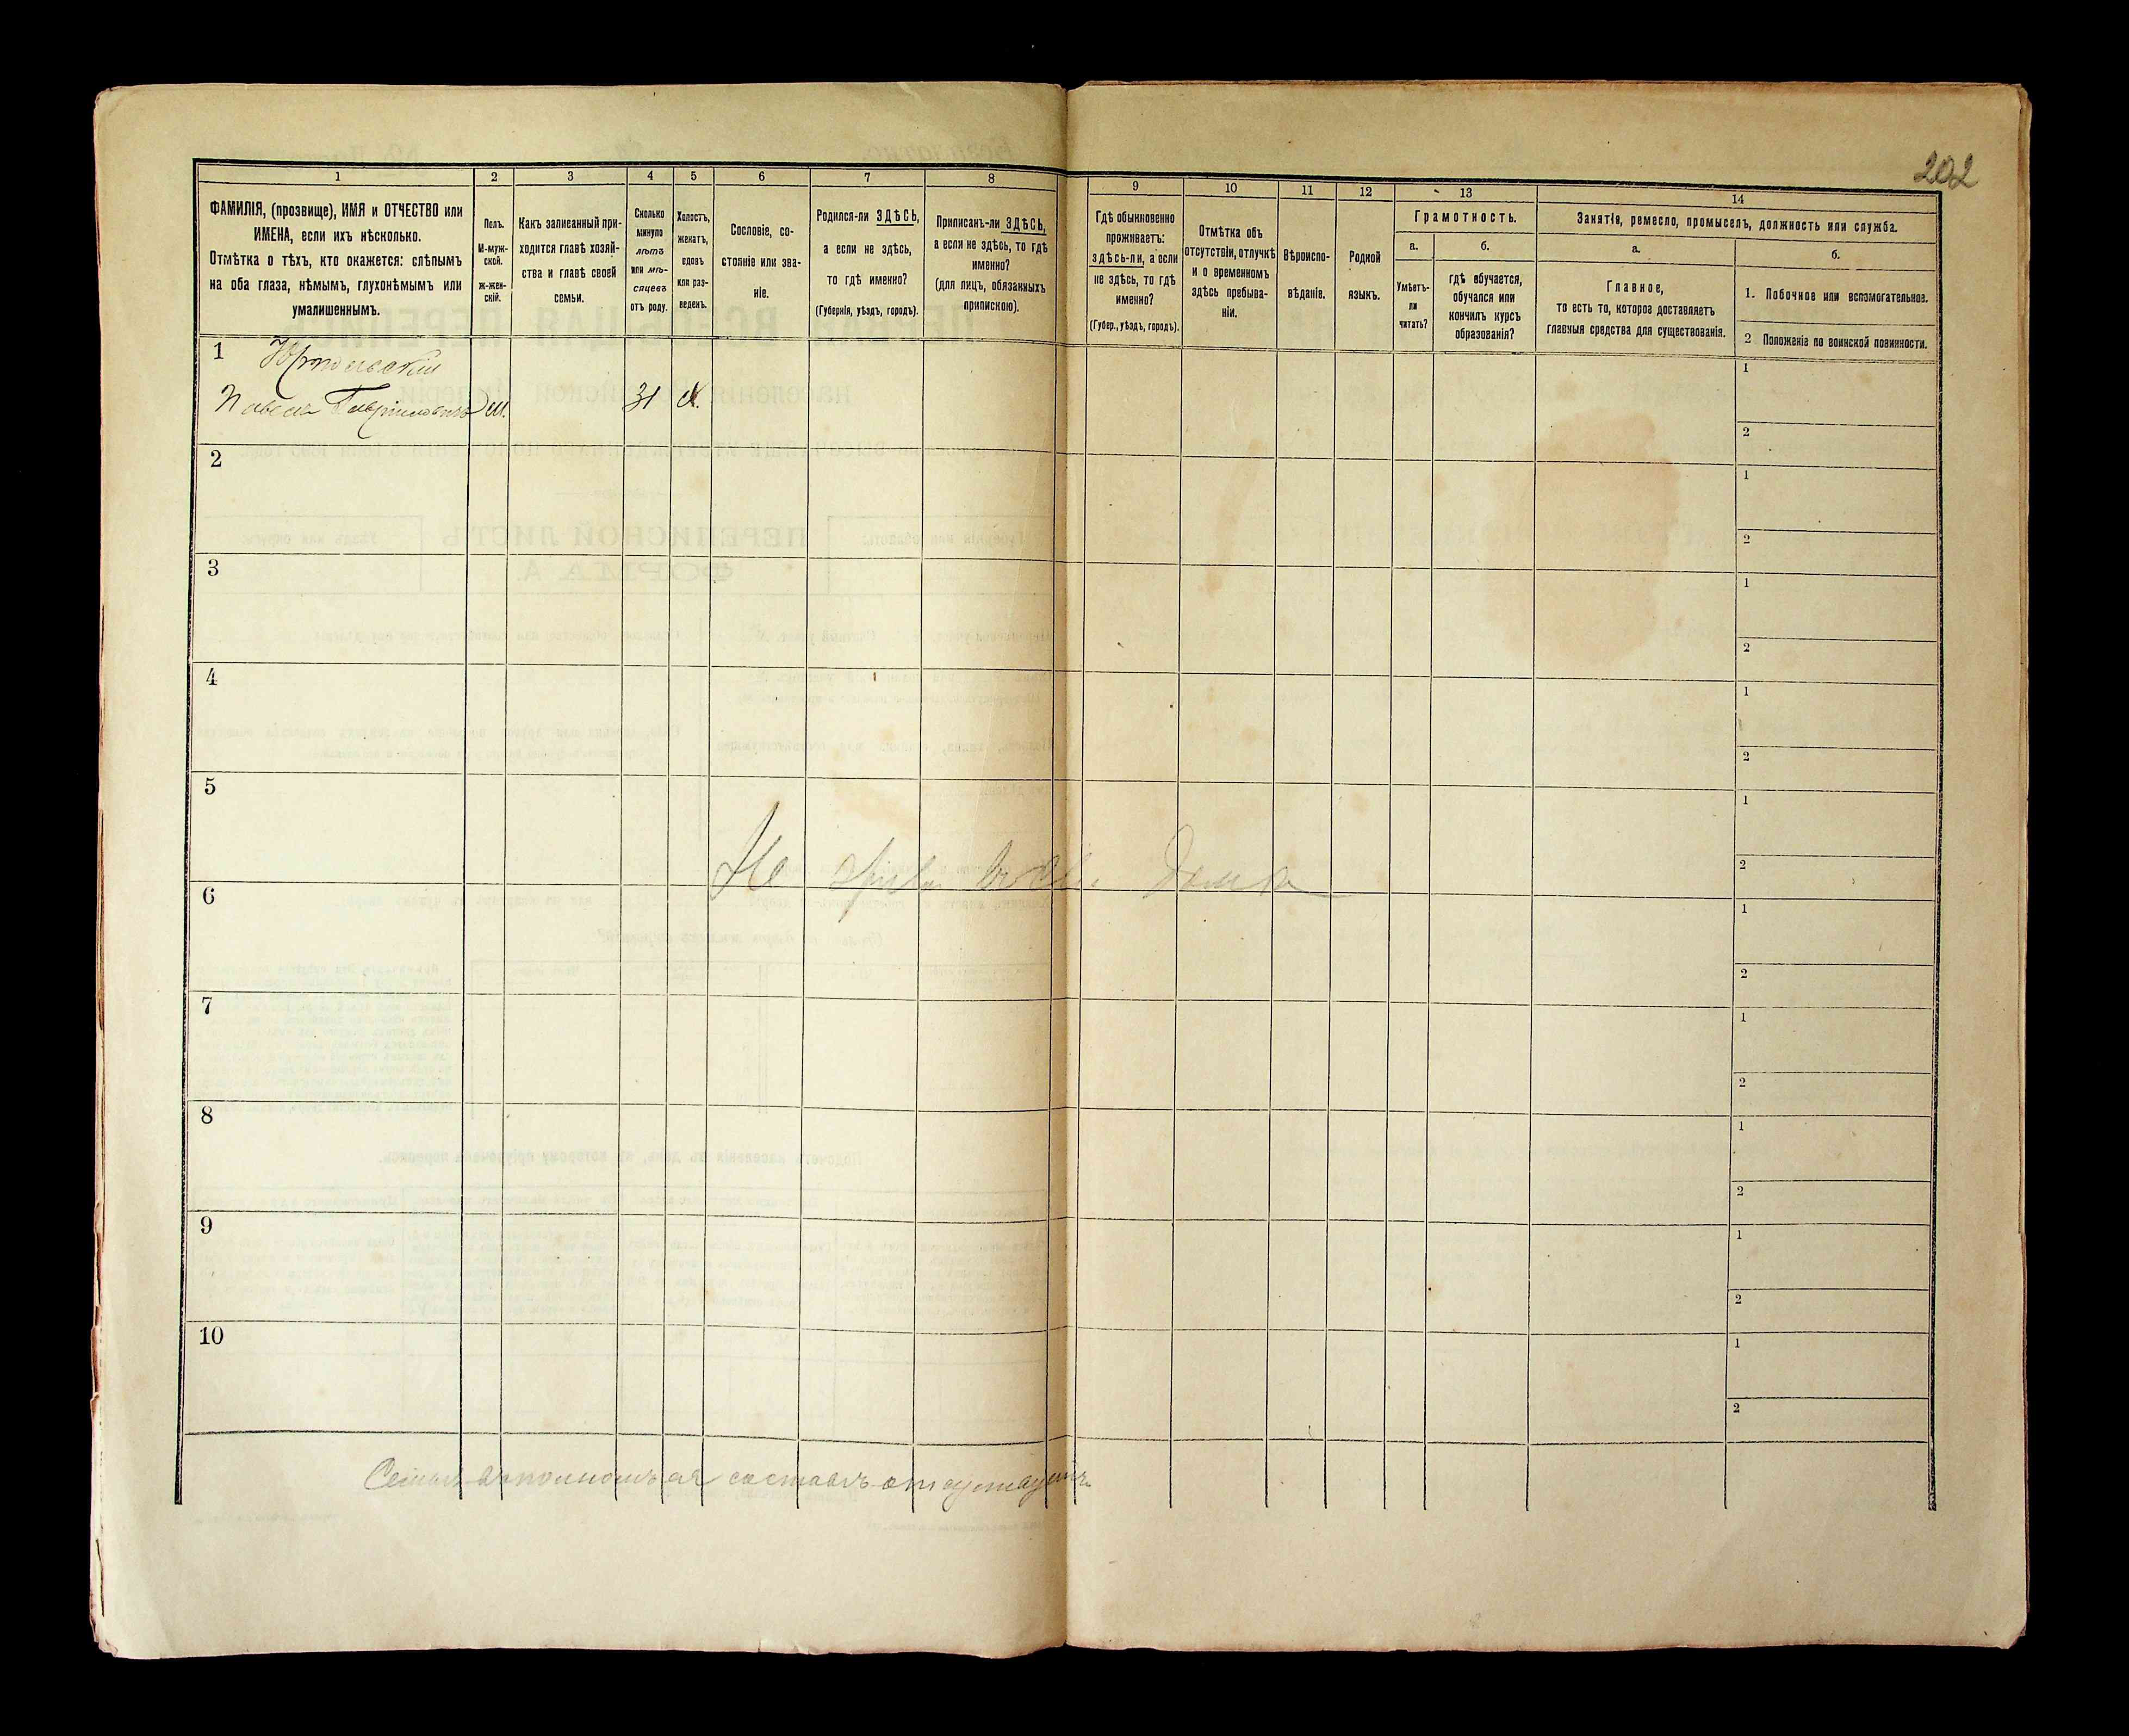 202
1
2
3
4
5
6
7
8
9
10
11
12
13
14
ФАМИЛІЯ, (прозвище), ИМЯ и ОТЧЕСТВО или
ИМЕНА, если ихъ нѣсколько.
Отмѣтка о тѣхъ, кто окажется: слѣпымъ
на оба глаза, нѣмымъ, глухонѣмымъ или
умалишеннымъ.
Полъ.
М-муж-
ской.
Ж-жен-
скій.
Какъ записанный при-
ходится главѣ хозяй-
ства и главѣ своей
семьи.
Сколько
минуло
лѣтъ
или мѣ-
сяцевъ
отъ роду.
Холостъ,
женатъ,
вдовъ
или раз-
веденъ.
Сословіе, со-
стояніе или зва-
ніе.
Родился-ли ЗДѢСЬ,
а если не здѣсь,
то гдѣ именно?
(Губернія, уѣздъ, городъ).
Приписанъ-ли ЗДѢСЬ,
а если не здѣсь, то гдѣ
именно?
(для лицъ, обязанныхъ
припискою).
Гдѣ обыкновенно
проживаетъ:
здѣсь-ли, а если
не здѣсь, то гдѣ
именно?
(Губер., уѣздъ, городъ).
Отмѣтка объ
отсутствіи, отлучкѣ
и о временномъ
здѣсь пребыва-
ніи.
Вѣроиспо-
вѣданіе.
Родной
языкъ.
Грамотность.
а.
Умѣетъ-
ли
читать?
б.
гдѣ обучается,
обучался или
кончилъ курсъ
образованія?
Занятіе, ремесло, промыселъ, должность или служба.
а.
Главное,
то есть то, которое доставляетъ
главныя средства для существованія.
б.
1. Побочное или вспомогательное.
2 Положеніе по воинской повинности.
1
Павелъ Гавриловичъ
м.
31
1
2
2
1
2
3
1
2
4
1
2
5
1
2
6
1
2
7
1
2
8
1
2
9
1
2
10
1
2
Не
дома
составѣ отсутствуетъ